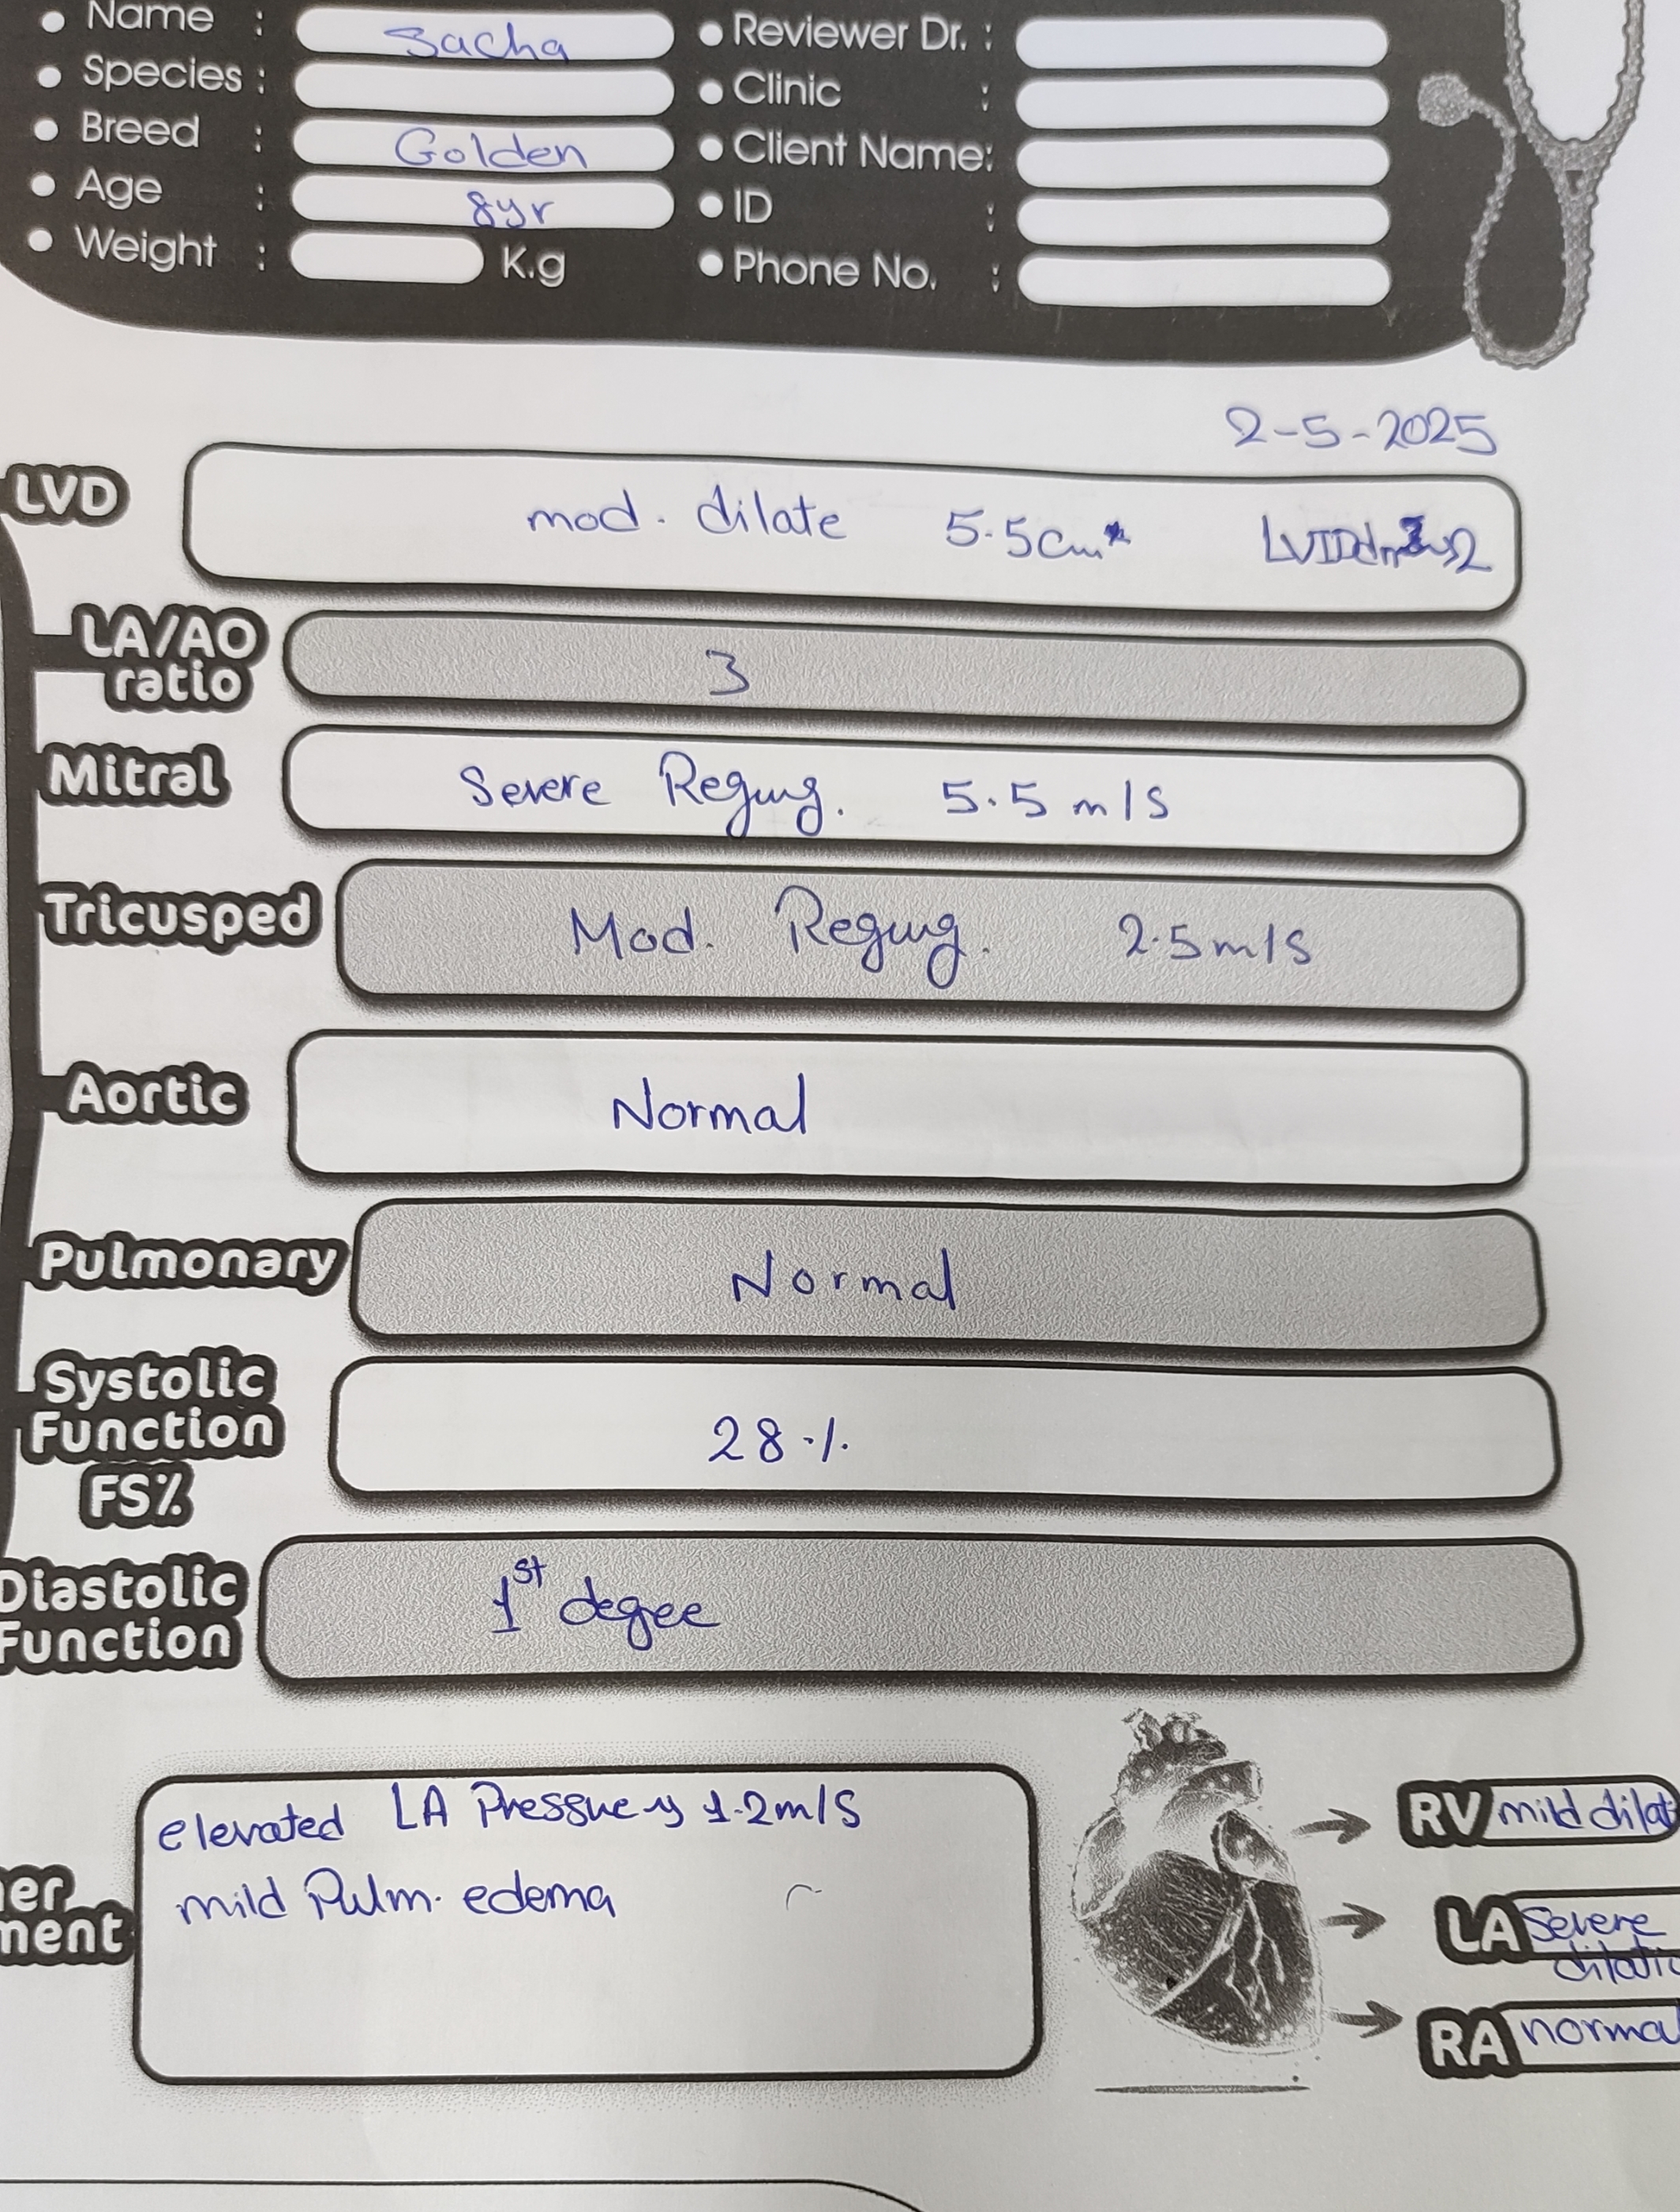 Name : Sacha
Species :
Breed : Golden
Age : 8yr
Weight : K.g
Reviewer Dr. :
Clinic :
Client Name:
ID :
Phone No. :
2-5-2025
LVD mod. dilate 5.5cm
LA/AO ratio 3
Mitral Severe Regurg. 5.5 m/s
Tricusped Mod. Regurg. 2.5m/s
Aortic Normal
Pulmonary Normal
Systolic Function FS% 28%
Diastolic Function 1st degee
elevated LA Pressure 1.2m/s
mild Pulm. edema
RV mild dilat
LA Severe dilatio
RA normal